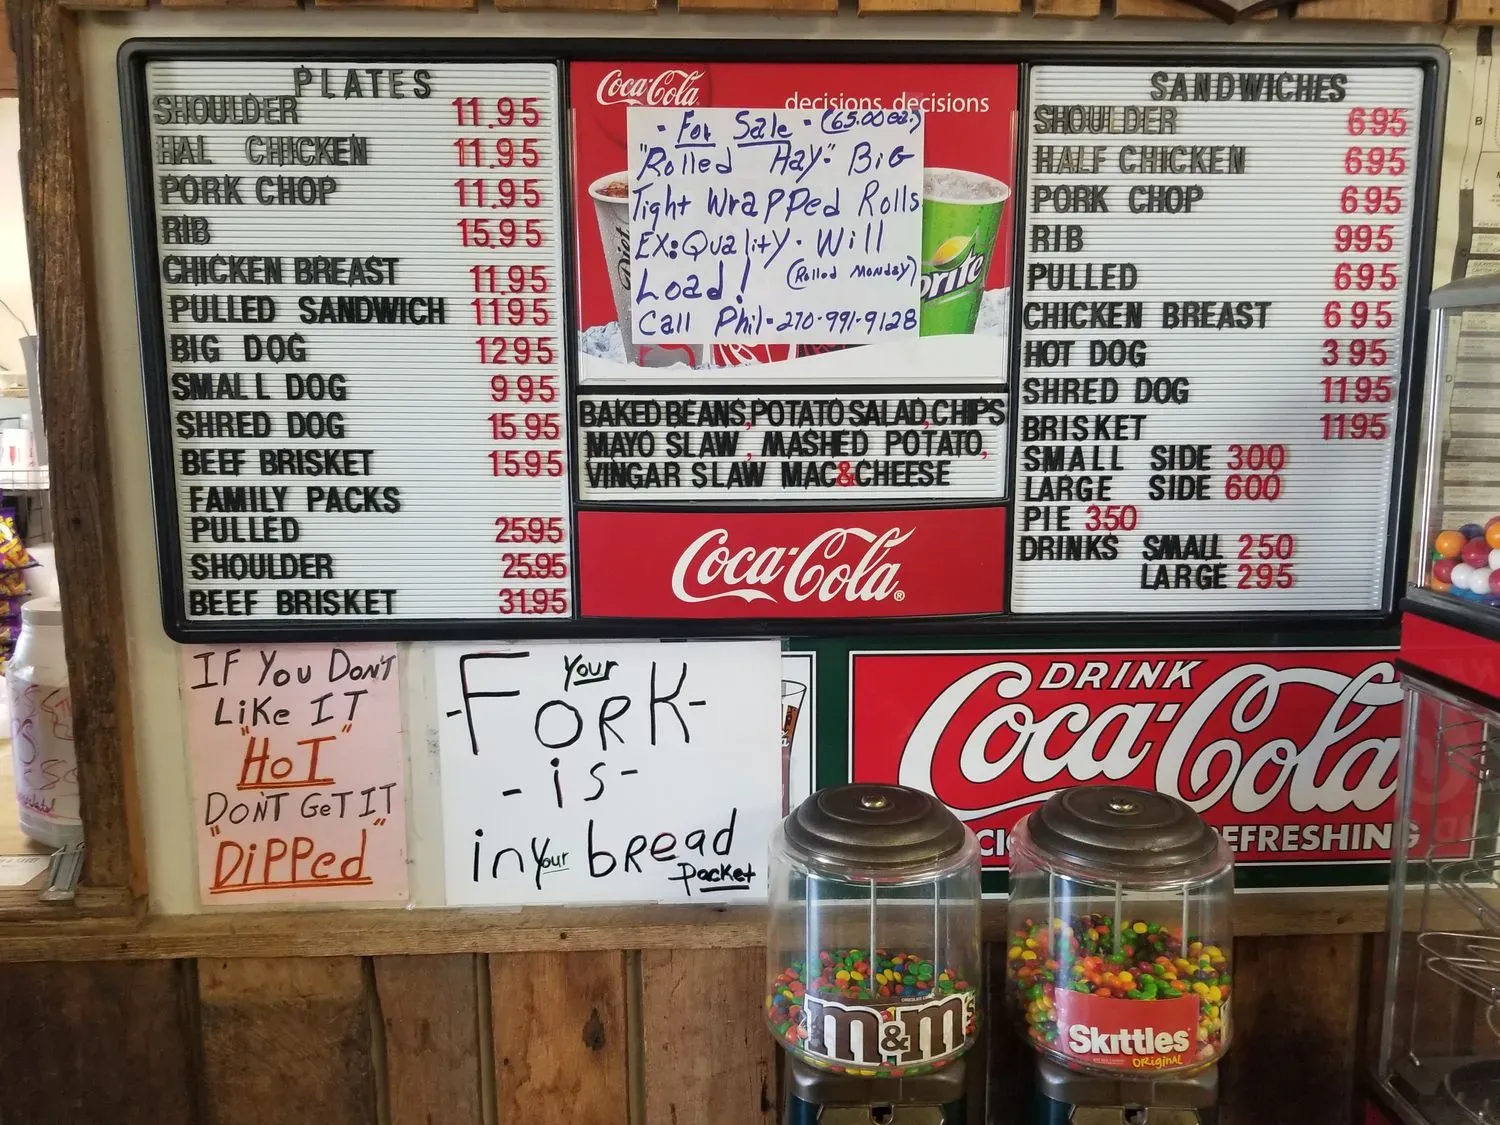 PLATES
SHOULDER 11.95
HAL CHICKEN 11.95
PORK CHOP 11.95
RIB 15.95
CHICKEN BREAST 11.95
PULLED SANDWICH 1195
BIG DOG 1295
SMALL DOG 995
SHRED DOG 1595
BEEF BRISKET 1595
FAMILY PACKS
PULLED 2595
SHOULDER 25.95
BEEF BRISKET 31.95
Coca-Cola
decisions, decisions
- For Sale - (65.00 ea.)
"Rolled Hay" BIG
Tight Wrapped Rolls
EX: Quality. Will
Load! (Rolled Monday)
Call Phil - 270-991-9128
Diet
Sprite
BAKED BEANS, POTATO SALAD, CHIPS
MAYO SLAW, MASHED POTATO,
VINGAR SLAW MAC&CHEESE
Coca-Cola®
SANDWICHES
SHOULDER 695
HALF CHICKEN 695
PORK CHOP 695
RIB 995
PULLED 695
CHICKEN BREAST 695
HOT DOG 395
SHRED DOG 1195
BRISKET 1195
SMALL SIDE 300
LARGE SIDE 600
PIE 350
DRINKS SMALL 250
LARGE 295
IF You DON'T
LiKe IT
"HoT"
DON'T GeT IT
"DiPPed"
your
-FORK-
-is-
in your bread
packet
DRINK
Coca-Cola
REFRESHING
m&m's
Skittles
ORIGINAL